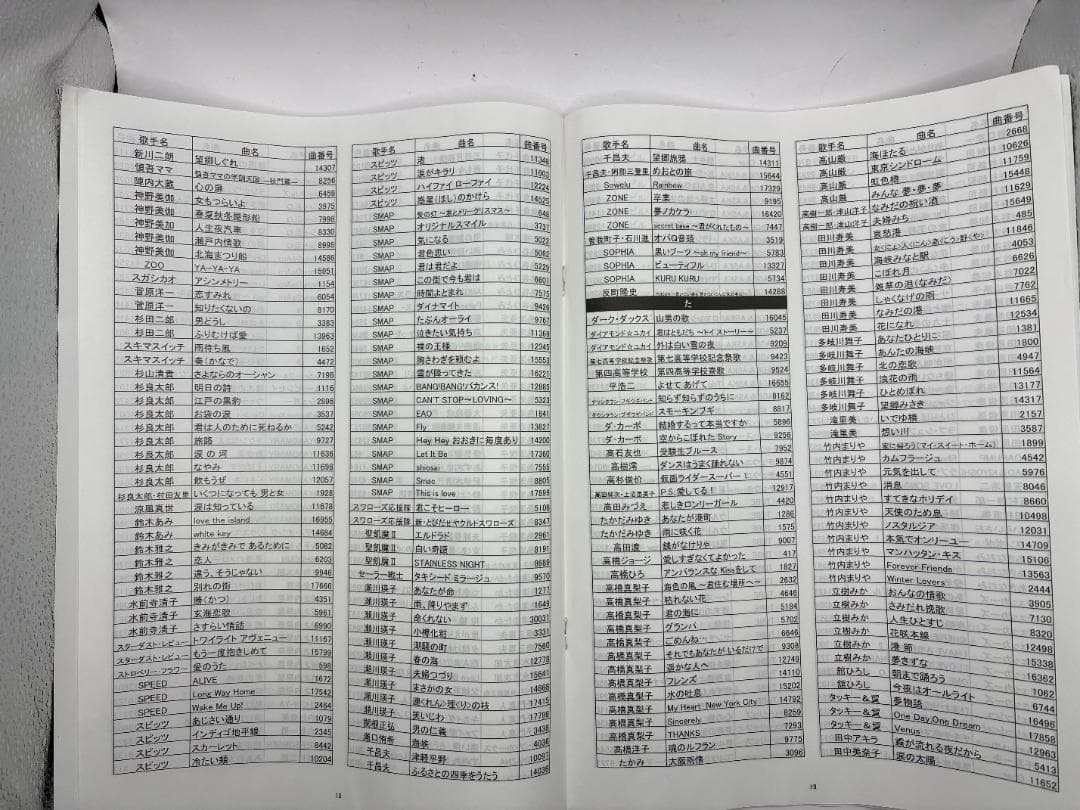 歌手名 曲名 曲番号
新川二朗 望郷しぐれ 14307
慎吾ママ 8256
陣内大蔵 心の扉 6459
神野美伽 女もつらいよ 3975
神野美伽 春夏秋冬屋形船 7998
神野美加 人生夜汽車 8330
神野美伽 瀬戸内情歌 8998
神野美伽 北海まつり船 14586
ZOO YA-YA-YA 15951
スガシカオ アシンメトリー 1154
菅原洋一 恋すみれ 6054
菅原洋一 知りたくないの 8170
杉田二郎 男どうし 3383
杉田二郎 ふりむけば愛 13963
スキマスイッチ 雨待ち風 1652
スキマスイッチ 奏(かなで) 4472
杉山清貴 さよならのオーシャン 7198
杉良太郎 明日の詩 1116
杉良太郎 江戸の黒豹 2896
杉良太郎 お袋の涙 3537
杉良太郎 君は人のために死ねるか 5242
杉良太郎 旅路 9727
杉良太郎 涙の河 11636
杉良太郎 なやみ 11698
杉良太郎 飲もうぜ 12057
杉良太郎・村田友里 いくつになっても 男と女 1928
涼風真世 涙は知っている 11678
鈴木あみ love the island 16955
鈴木あみ white key 14684
鈴木雅之 きみがきみで あるために 5082
鈴木雅之 恋人 6203
鈴木雅之 違う、そうじゃない 9946
鈴木雅之 別れの街 17666
水前寺清子 勝(かつ) 4351
水前寺清子 玄海恋歌 5961
水前寺清子 さすらい情話 6990
スターダスト・レビュー トワイライト アヴェニュー 11167
スターダスト・レビュー もう一度抱きしめて 15799
ストロベリー・フラワー 愛のうた 598
SPEED ALIVE 1672
SPEED Long Way Home 17542
SPEED Wake Me Up! 2464
スピッツ あじさい通り 1079
スピッツ インディゴ地平線 2345
スピッツ スカーレット 8442
スピッツ 冷たい頬 10204
歌手名 曲名 曲番号
スピッツ 渚 11346
スピッツ 涙がキラリ 11603
スピッツ ハイファイ ローファイ 12224
スピッツ 惑星(ほし)のかけら 14525
SMAP 648
SMAP オリジナルスマイル 3731
SMAP 気になる 5022
SMAP 君色思い 5062
SMAP 君は君だよ 5229
SMAP この街で今も君は 6601
SMAP 時間よとまれ 7575
SMAP ダイナマイト 9426
SMAP たぶんオーライ 9767
SMAP 泣きたい気持ち 11369
SMAP 裸の王様 12345
SMAP 胸さわぎを頼むよ 15553
SMAP 雪が降ってきた 16221
SMAP BANG!BANG!バカンス! 12885
SMAP CAN'T STOP~LOVING~ 5323
SMAP EAO 1841
SMAP Fly 13827
SMAP Hey Hey おおきに毎度あり 14200
SMAP Let It Be 17360
SMAP shiosai 7555
SMAP Smac 8805
SMAP This is love 17899
スワローズ応援隊 君こそヒーロー 5108
スワローズ応援隊 新・とびだせヤクルトスワローズ 8347
聖飢魔Ⅱ エルドラド 2961
聖飢魔Ⅱ 白い奇蹟 8191
聖飢魔Ⅱ STAINLESS NIGHT 8689
セーラー戦士 タキシード ミラージュ 9570
瀬川瑛子 あなたが命 1277
瀬川瑛子 雨、降りやまず 1649
瀬川瑛子 命くれない 30031
瀬川瑛子 小樽化粧 3331
瀬川瑛子 潮騒の町 7560
瀬川瑛子 春の海 12778
瀬川瑛子 夫婦つづり 15641
瀬川瑛子 まさかの女 14868
瀬川瑛子 連(くれん)理(くり)の枝 12415
瀬川瑛子 笑いじわ 17796
関根正弘 男の仁義 3438
瀬口侑希 海峡 4036
千昌夫 津軽平野 10097
千昌夫 ふるさとの四季をうたう 14036
18
歌手名 曲名 曲番号
千昌夫 望郷旅鴉 14311
千昌夫・阿部三登里 めおとの旅 15644
Sowelu Rainbow 17329
ZONE 卒業 9195
ZONE 夢ノカケラ 16420
ZONE secret base ~君がくれたもの~ 7447
曽我町子・石川進 オバQ音頭 3519
SOPHIA 黒いブーツ ~oh my friend~ 5783
SOPHIA ビューティフル 13327
SOPHIA KURU KURU 5734
反町隆史 14288
た
ダーク・ダックス 山男の歌 16045
ダイアモンド☆ユカイ 君はともだち ~トイ ストーリー~ 5237
ダイアモンド☆ユカイ 外は白い雪の夜 9209
第七高等学校記念祭歌 第七高等学校記念祭歌 9423
第四高等学校 第四高等学校寮歌 9424
平浩二 よせて あげて 16655
ダウンタウン・ブギウギバンド 知らず知らずのうちに 8162
ダウンタウン・ブギウギバンド スモーキンブギ 8817
ダ・カーポ 結婚するって本当ですか 5896
ダ・カーポ 空からこぼれた Story 9256
高石友也 受験生ブルース 7952
高樹澪 ダンスはうまく踊れない 9874
高杉俊价 仮面ライダースーパー1 4551
P.S.愛してる! 12917
高田みづえ 悲しきロンリーガール 4420
たかだみゆき あなたが港町 1286
たかだみゆき 雨に咲く花 1575
高田渡 銭がなけりゃ 9007
高橋ジョージ 愛しすぎなくてよかった 417
高橋ひろ アンバランスな Kissをして 1827
高橋真梨子 海色の風 ~君住む場所へ~ 2632
高橋真梨子 枯れない花 4646
高橋真梨子 君の海に 5184
高橋真梨子 グランパ 5702
高橋真梨子 ごめんね… 6646
高橋真梨子 それでもあなたが いるだけで 9308
高橋真梨子 遥かな人へ 12740
高橋真梨子 フレンズ 14110
高橋真梨子 水の吐息 15202
高橋真梨子 My Heart New York City 14792
高橋真梨子 Sincerely 8259
高橋真梨子 THANKS 7293
高橋洋子 魂のルフラン 9775
たかみ 大阪雨情 3096
歌手名 曲名 曲番号
高山厳 海ほたる 2668
高山厳 東京シンドローム 10626
高山厳 虹色橋 11759
高山厳 みんな 夢・夢・夢 15448
高樹一郎・津山洋子 なみだの祝い酒 11629
高樹一郎・津山洋子 夫婦みち 15649
田川寿美 哀愁港 485
田川寿美 11846
田川寿美 海峡みなと駅 4053
田川寿美 こぼれ月 6626
田川寿美 雑草の泪(なみだ) 7022
田川寿美 しゃくなげの雨 7762
田川寿美 なみだの港 11665
田川寿美 花になれ 12534
多岐川舞子 あなたひとりに 1381
多岐川舞子 あんたの海峡 1800
多岐川舞子 北の恋歌 4947
多岐川舞子 浪花の雨 11564
多岐川舞子 ひとめぼれ 13177
多岐川舞子 望郷みさき 14317
滝里美 いでゆ橋 2157
滝里美 想い川 3587
竹内まりや 家に帰ろう(マイ・スイート・ホーム) 1899
竹内まりや カムフラージュ 4542
竹内まりや 元気を出して 5976
竹内まりや 消息 8046
竹内まりや すてきなホリデイ 8660
竹内まりや 天使のため息 10498
竹内まりや ノスタルジア 12031
竹内まりや 本気でオンリーユー 14709
竹内まりや マンハッタン・キス 15106
竹内まりや Forever Friends 13563
竹内まりや Winter Lovers 2444
立樹みか おんなの情歌 3905
立樹みか さみだれ挽歌 7130
立樹みか 人生ひとすじ 8320
立樹みか 花咲本線 12498
立樹みか 港 節 15338
立樹みか 夢きずな 16362
舘ひろし 朝まで踊ろう 1062
舘ひろし 今夜はオールライト 6744
タッキー&翼 夢物語 16496
タッキー&翼 One Day,One Dream 17858
タッキー&翼 Venus 12963
田中アキラ 霧が流れる夜だから 5413
田中美奈子 涙の太陽 11652
19